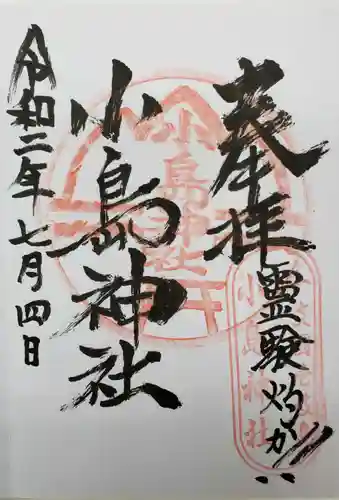 奉拝
霊験灼か
小島神社
令和二年七月四日
小島神社
小島神社